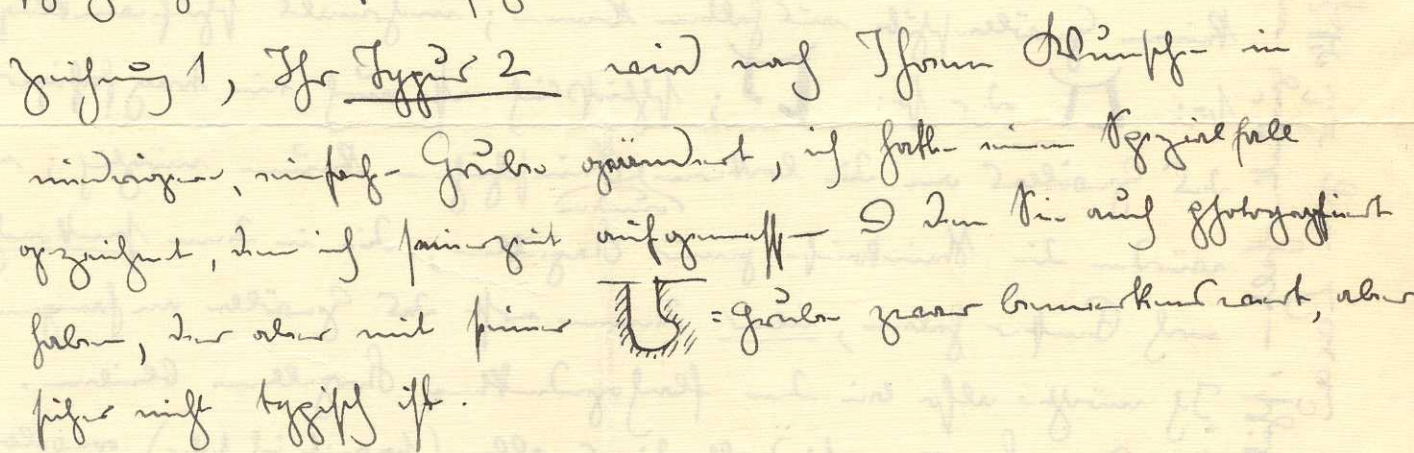 Zeichnung 1, Ihr Typus 2 wird nach Ihrem Wunsch in
niedrigere, einfache Grube geändert, ich hatte einen Spezialfall
gezeichnet, den ich seinerzeit aufgemessen & den Sie auch photographiert
haben, der aber mit seiner U=Grube zwar bemerkenswert, aber
sicher nicht typisch ist.